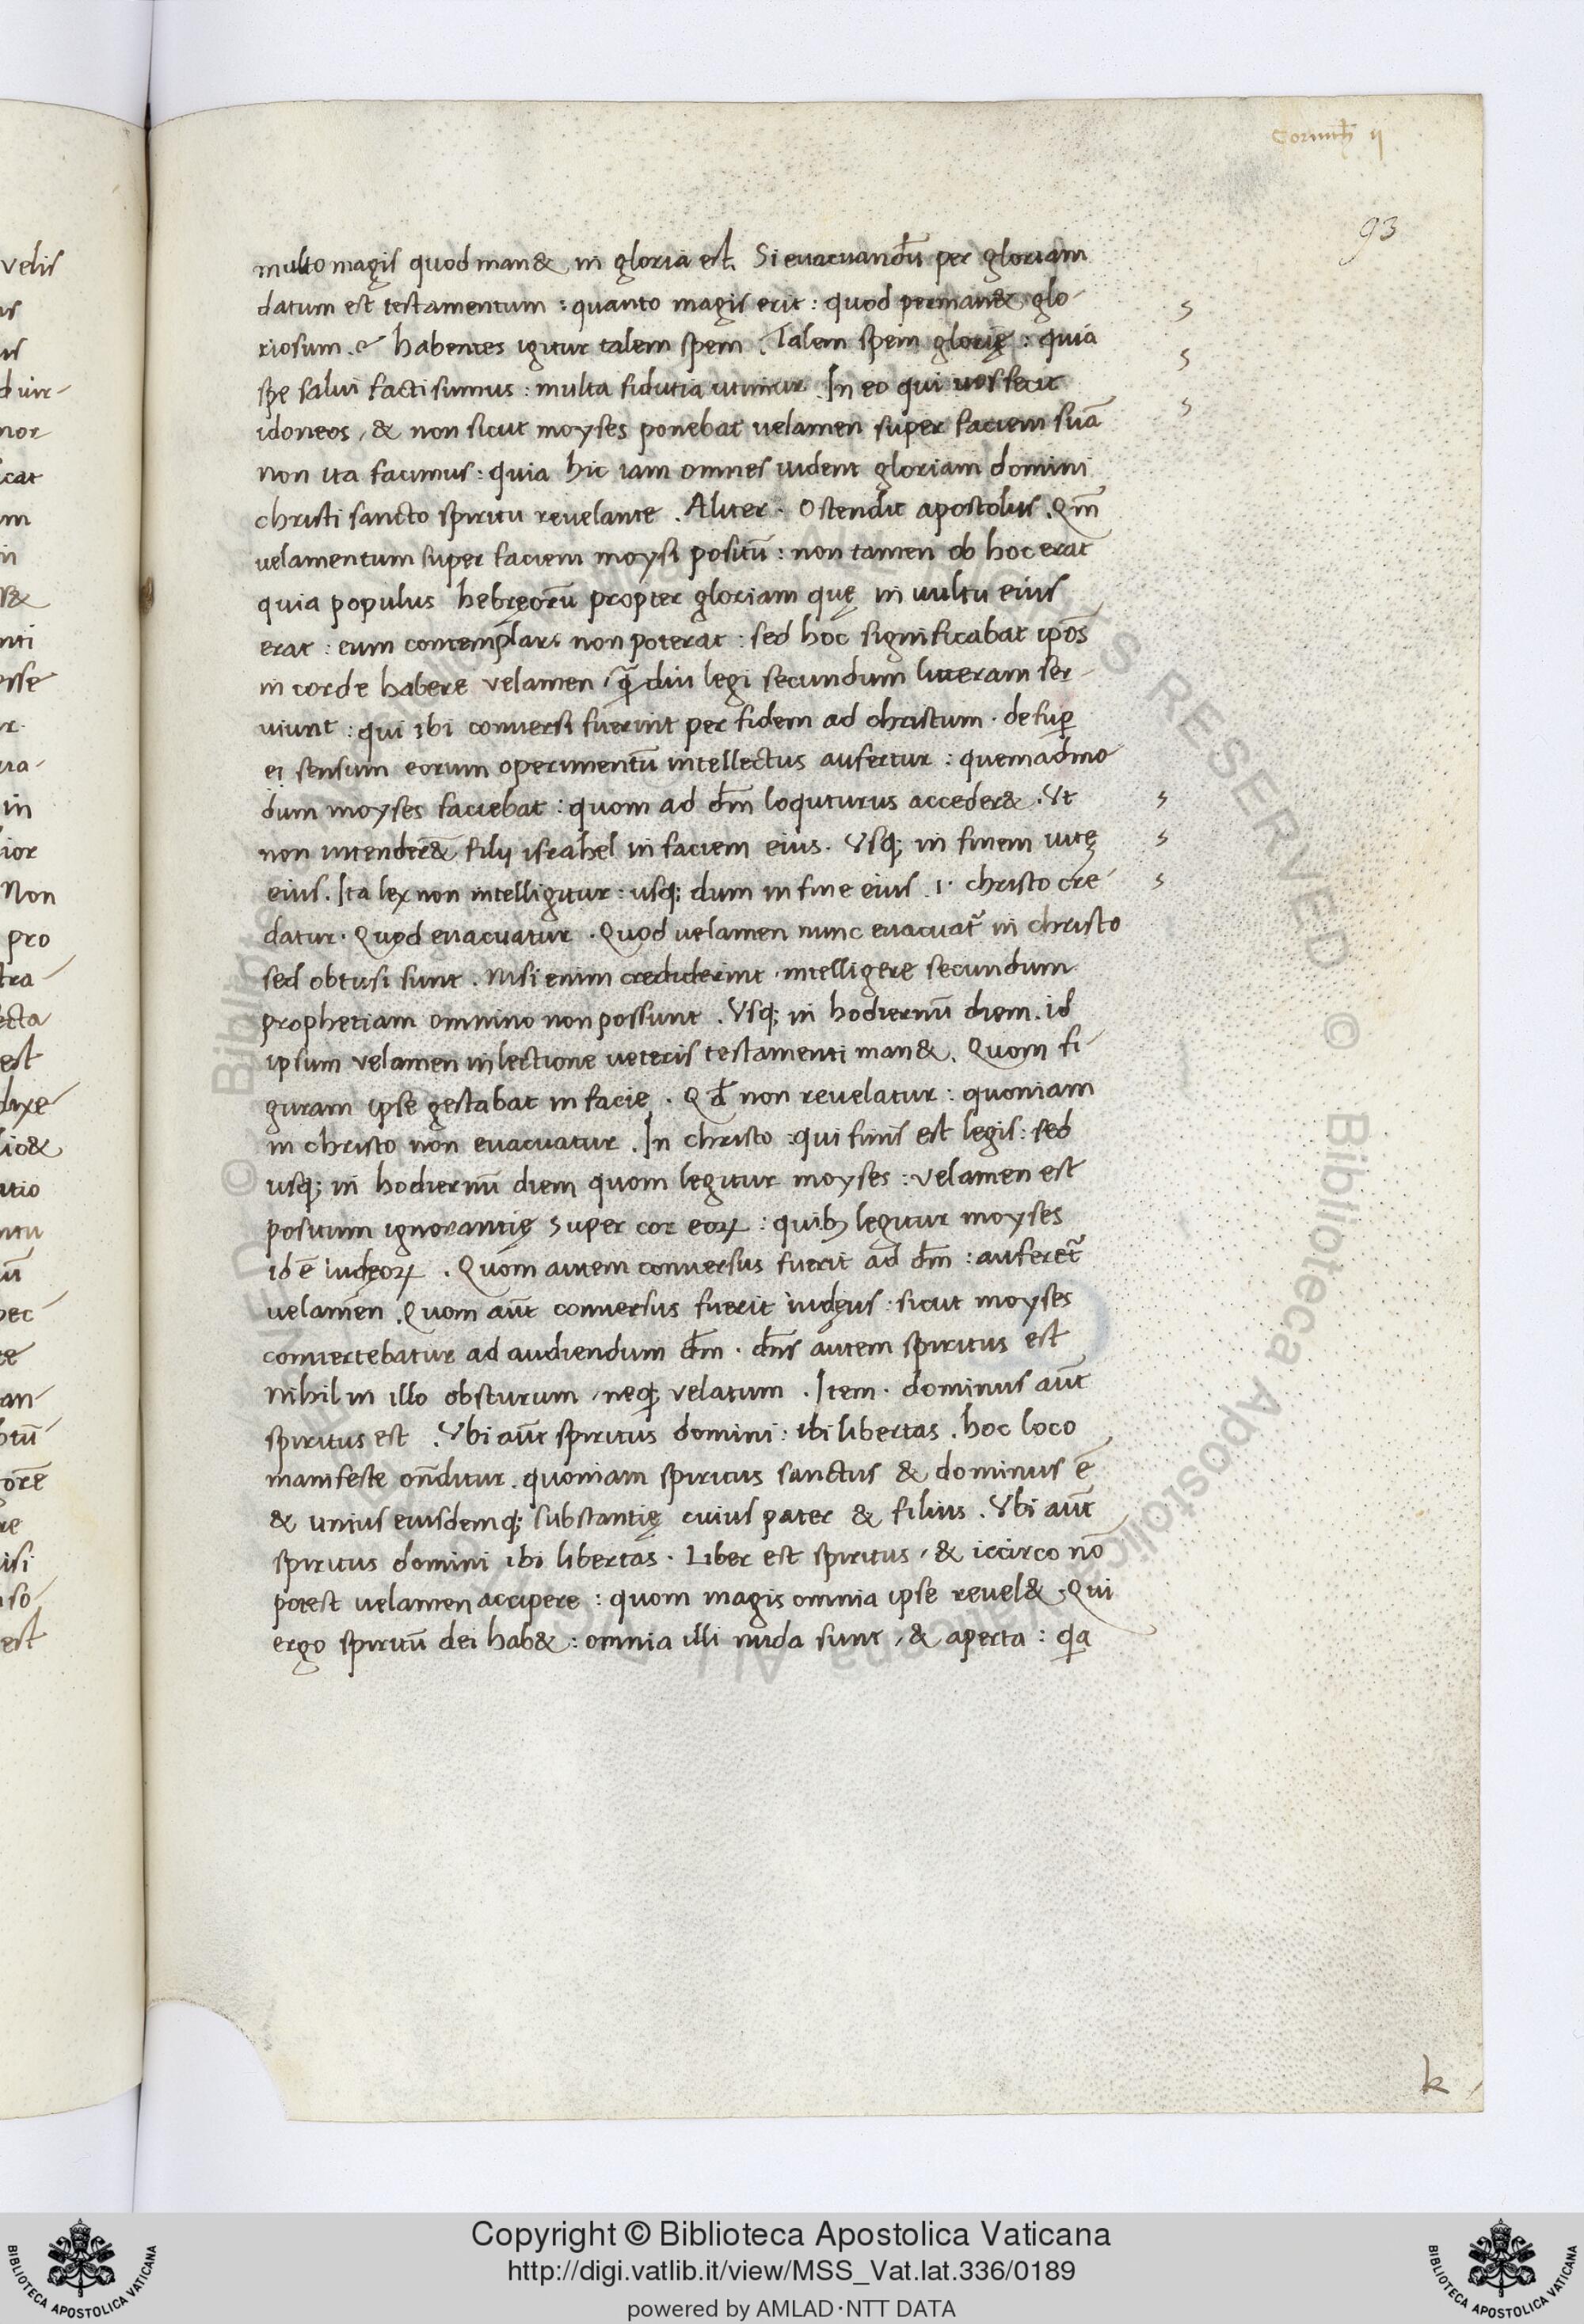 Corinth ii
93
multo magis quod man& in gloria est. Si evacuandū per gloriam
datum est testamentum : quanto magis erit : quod perman& glo-
riosum. habentes igitur talem spem . Talem spem glorię : quia
spe salui facti sumus : multa fidutia utimur . In eo qui nos fecit
idoneos, & non sicut moyses ponebat uelamen super faciem suā
non ita facimus : quia hic iam omnes uident gloriam domini
christi sancto spiritu reuelante . Aliter . Ostendit apostolus . Qm̄
uelamentum super faciem moysi positū : non tamen ob hoc erat
quia populus hebręorū propter gloriam quę in uultu eius
erat : eum contemplari non poterat : sed hoc significabat ipōs
in corde habere velamen , q̄ diu legi secundum litteram ser-
uiunt : qui ibi conuersi fuerint per fidem ad christum . desup
ei sensum eorum operimentū intellectus aufertur : quemadmo
dum moyses faciebat : quom ad dm̄ loquturus acceder& . Vt
non intender& filij israhel in faciem eius . Vsq; in finem uitę
eius . Ita lex non intelligitur : usq; dum in fine eius .i. christo cre-
datur . Quod evacuatur . Quod uelamen nunc evacuat᷑ in christo
sed obtusi sunt . Nisi enim crediderint . intelligere secundum
prophetiam omnino non possunt . Vsq; in hodiernū diem . id
ipsum velamen in lectione ueteris testamenti man& . Quom fi-
guram ipse gestabat in facie . Qd̄ non reuelatur : quoniam
in christo non evacuatur . In christo : qui finis est legis : sed
usq; in hodiernū diem quom legitur moyses : velamen est
positum ignorantię super cor eoꝝ : quibꝫ legitur moyses
id ē iudęoꝝ . Quom autem conuersus fuerit ad dm̄ : auferet᷑
uelamen . Quom aūt conuersus fuerit iudęus : sicut moyses
conuertebatur ad audiendum dm̄ . dn̄s autem spiritus est
nihil in illo obscurum , neq; velatum . Item . dominus aūt
spiritus est . Vbi aūt spiritus domini : ibi libertas . hoc loco
manifeste on̄ditur . quoniam spiritus sanctus & dominus ē
& unius eiusdemq; substantię cuius pater & filius . Vbi aūt
spiritus domini ibi libertas . Liber est spiritus , & iccirco nō
potest uelamen accipere : quom magis omnia ipse reuel& . Qui
ergo spiritū dei hab& : omnia illi nuda sunt , & aperta : qa
k
Copyright © Biblioteca Apostolica Vaticana
http://digi.vatlib.it/view/MSS_Vat.lat.336/0189
powered by AMLAD·NTT DATA